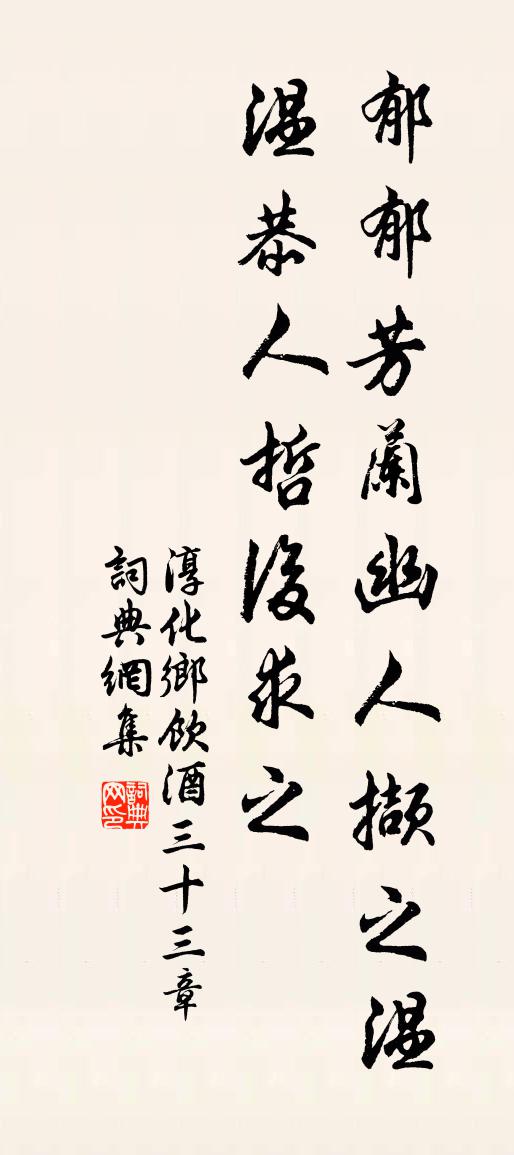 郁郁芳蘭幽人擷之温
温恭人哲後求之
淳化鄉飲酒三十三章
詞典網集
詞典
网印